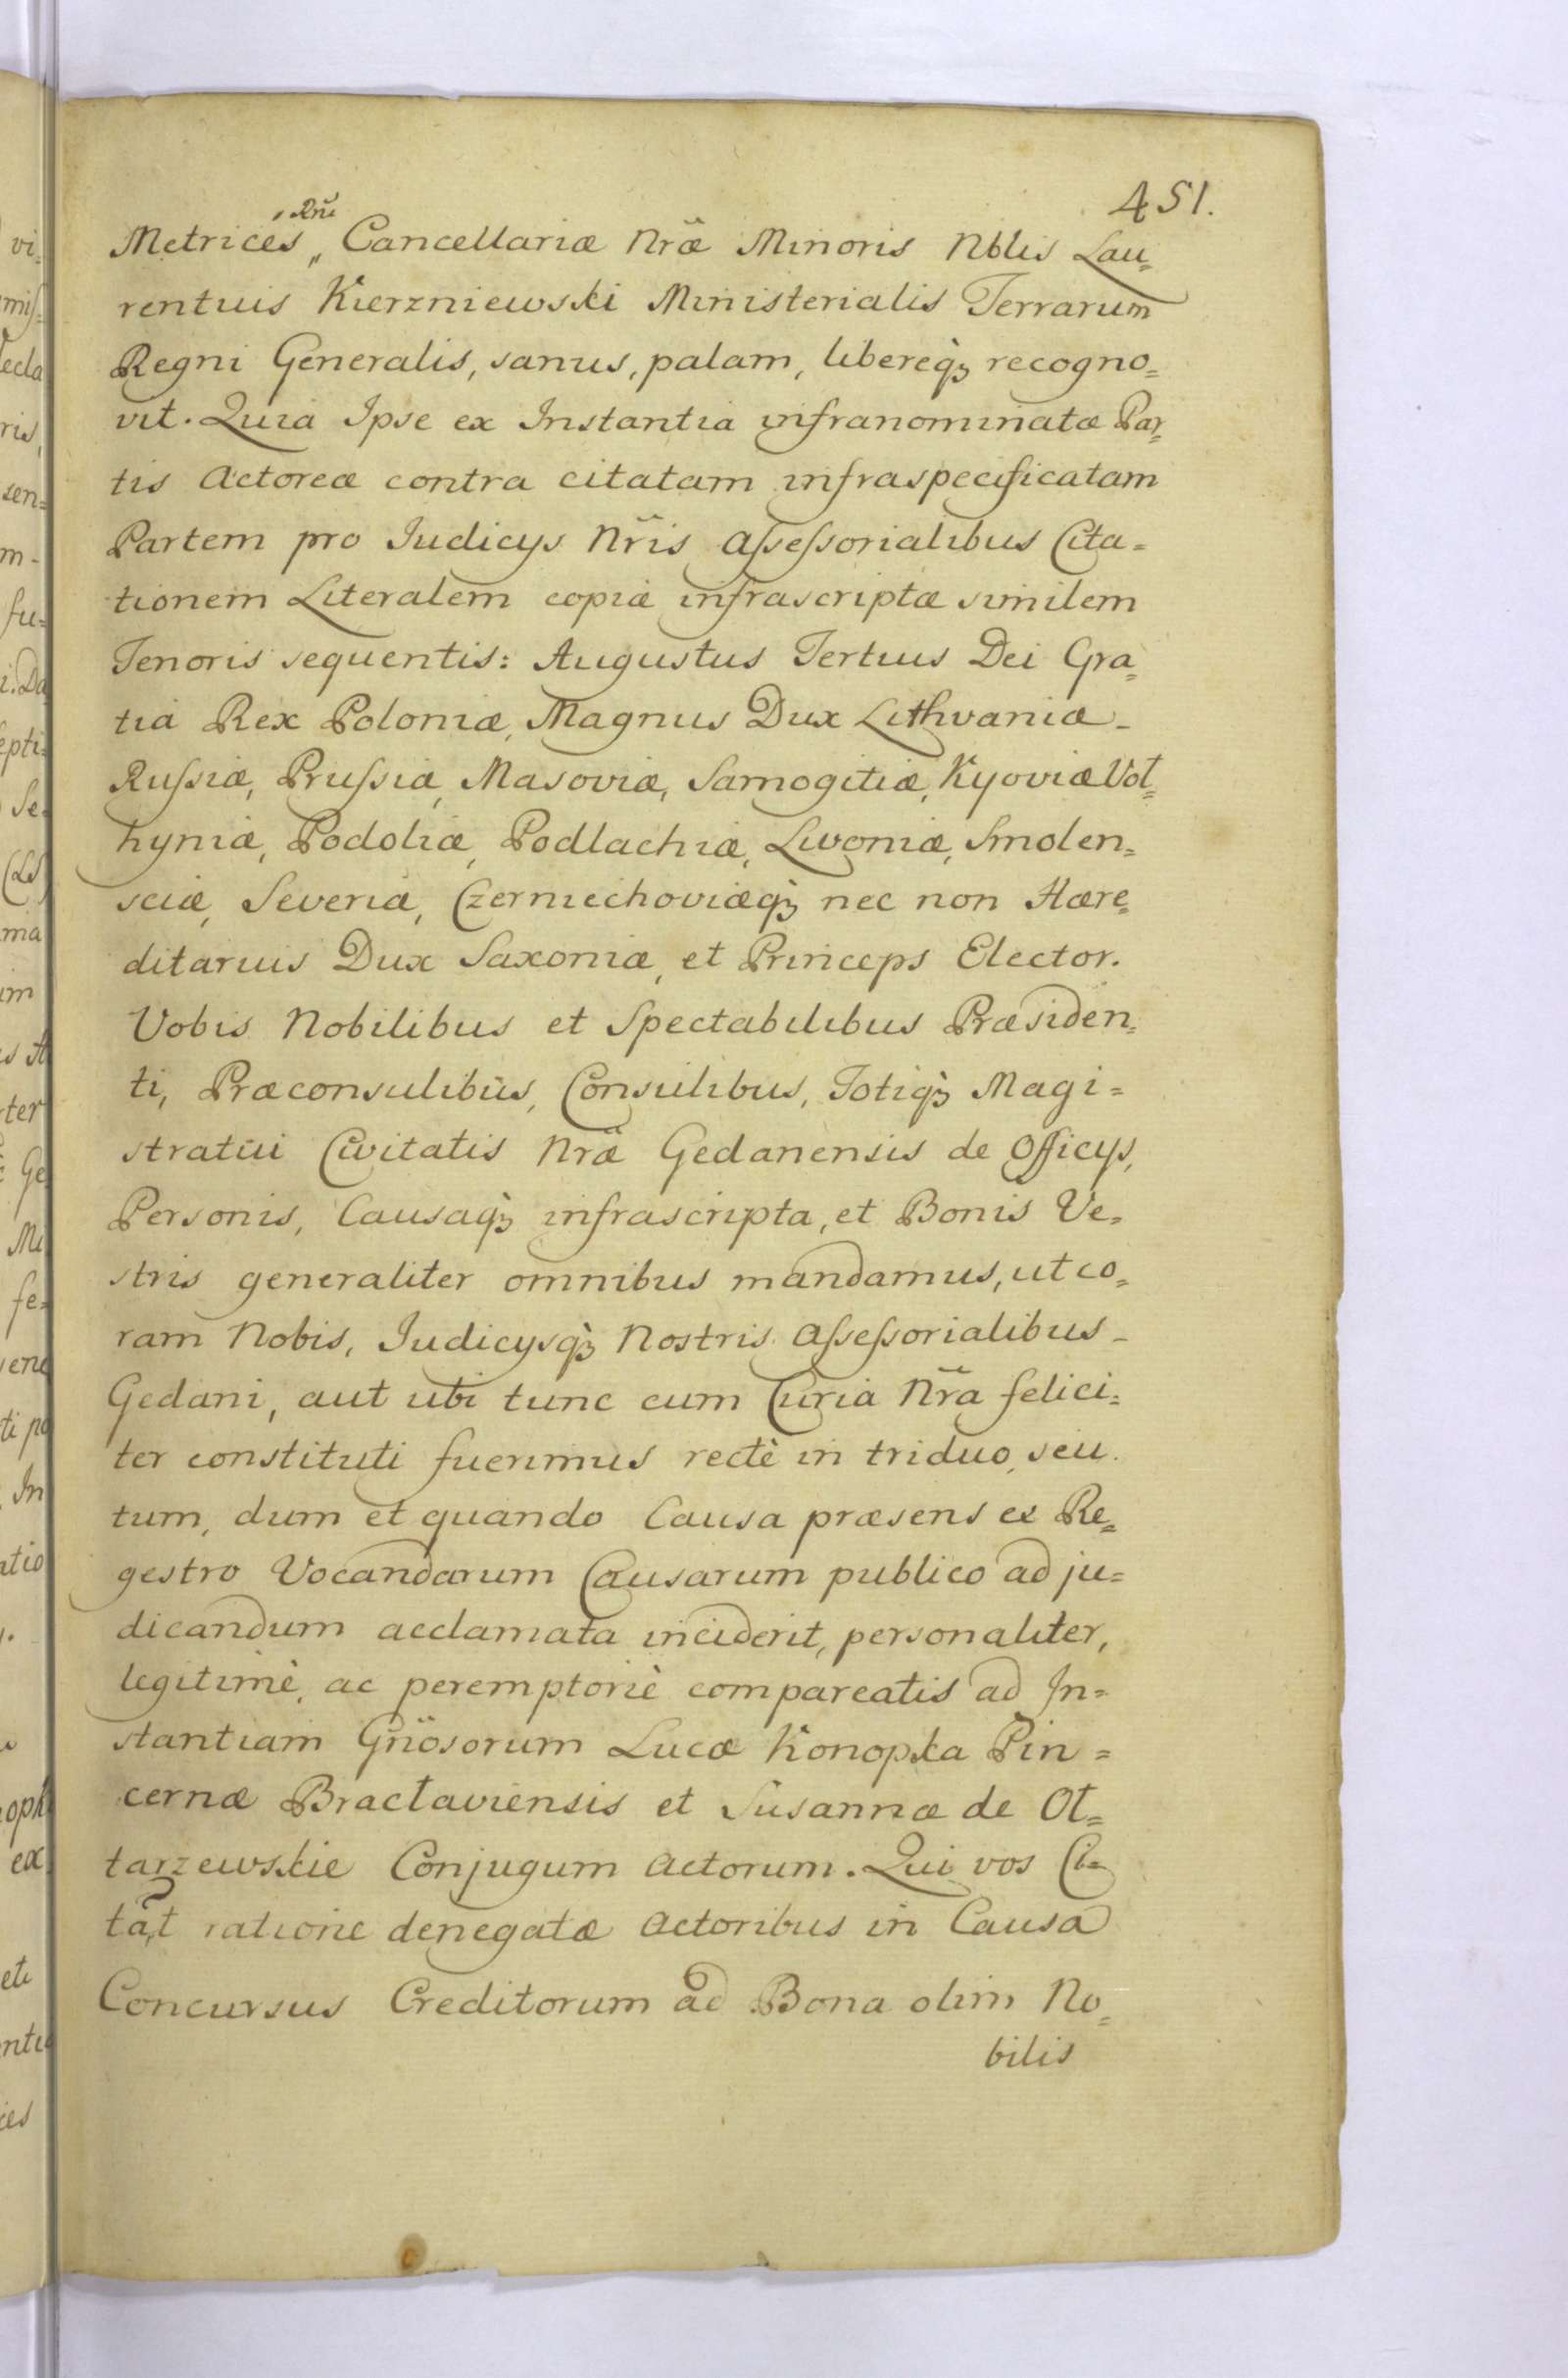 451.
Metrices „ Rni Cancellariæ Nræ Minoris Nblis Lau=
rentius Kierzniewski Ministerialis Terrarum
Regni Generalis, sanus, palam, libereq; recogno=
vit. Quia Ipse ex Instantia infranominatæ Par=
tis Actoreæ contra citatam infraspecificatam
Partem pro Iudicys Nris Assessorialibus Cita=
tionem Literalem copiæ infrascriptæ similem
Tenoris sequentis: Augustus Tertius Dei Gra=
tia Rex Poloniæ, Magnus Dux Lithvaniæ -
Russiæ, Prussiæ, Masoviæ, Samogitiæ, Kyoviæ Vol=
hyniæ, Podoliæ, Podlachiæ, Livoniæ, Smolen=
sciæ, Severiæ, Czerniechoviæq; nec non Hære=
ditarius Dux Saxoniæ, et Princeps Elector.
Vobis Nobilibus et Spectabilibus Præsiden=
ti, Præconsulibus, Consulibus, Totiq; Magi=
stratui Civitatis Nræ Gedanensis de Officys,
Personis, Causaq; infrascripta, et Bonis Ve=
stris generaliter omnibus mandamus, ut co=
ram Nobis, Iudicysq; Nostris Assessorialibus -
Gedani, aut ubi tunc cum Curia Nra felici=
ter constituti fuerimus recte in triduo, seu
tum, dum et quando Causa præsens ex Re=
gestro Vocandarum Causarum publico ad ju=
dicandum acclamata inciderit, personaliter,
legitimè, ac peremptoriè compareatis ad In=
stantiam Gnosorum Lucæ Konopka Pin=
cernæ Bractaviensis et Susannæ de Ot=
tarzewskie Conjugum Actorum. Qui vos Ci=
tãt ratione denegatæ Actoribus in Causa
Concursus Creditorum ad Bona olim No=
bilis